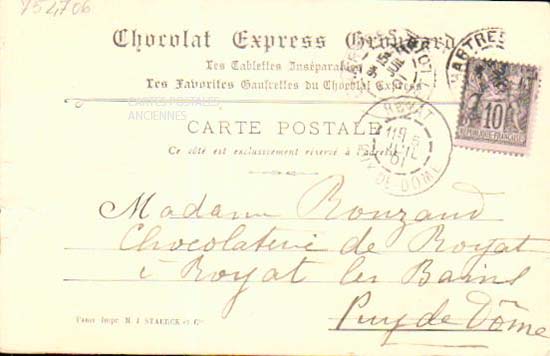 V54706
Chocolat Express Grondard
Les Tablettes Inséparables
Les Favorites Gaufrettes du Chocolat Express
CARTES POSTALES
ANCIENNES
CARTE POSTALE
Ce côté est exclusivement réservé à l'adresse
CHARTRES
JUIL
01
10
RÉPUBLIQUE FRANÇAISE
ROYAT
JUIL
01
PUY-DE-DOME
Madame Rouzaud
Chocolaterie de Royat
à Royat les Bains
Puy de Dôme
Paris Impr. M. J. STAERCK et Cie